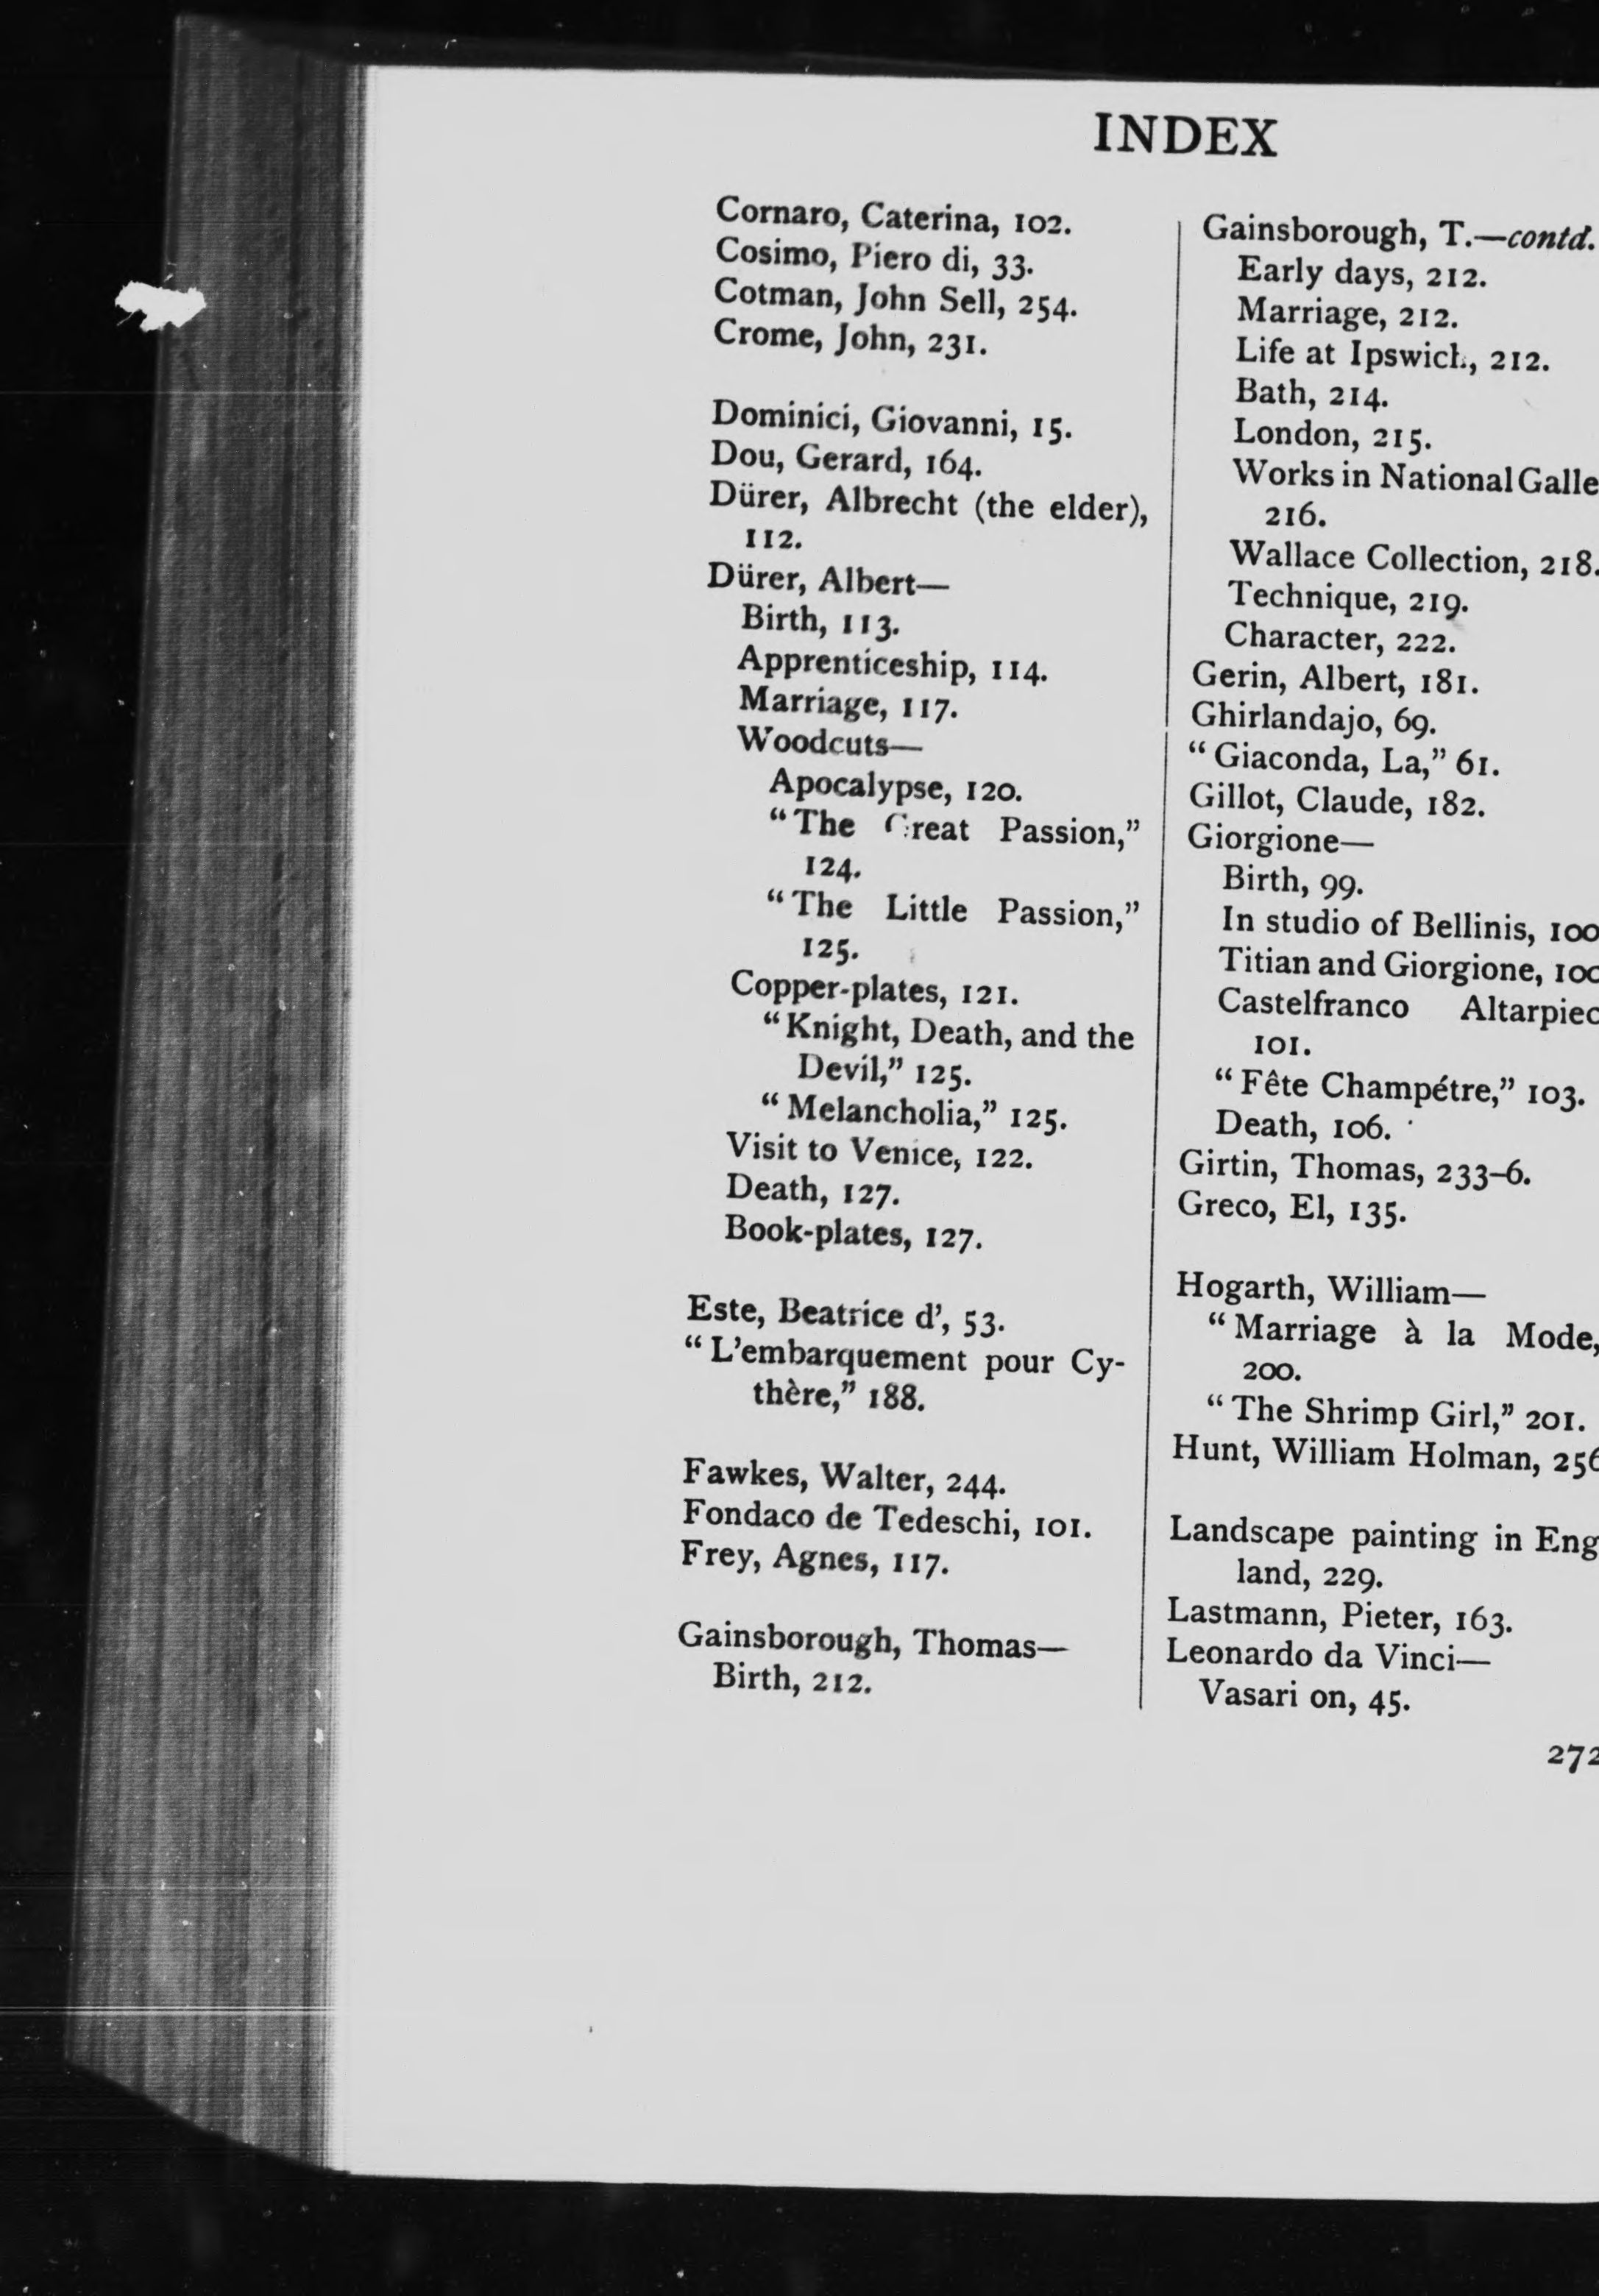 INDEX
Cornaro, Caterina, 102.
Cosimo, Piero di, 33.
Cotman, John Sell, 254.
Crome, John, 231.
Dominici, Giovanni, 15.
Dou, Gerard, 164.
Dürer, Albrecht (the elder),
112.
Dürer, Albert—
Birth, 113.
Apprenticeship, 114.
Marriage, 117.
Woodcuts—
Apocalypse, 120.
"The Great Passion,"
124.
"The Little Passion,"
125.
Copper-plates, 121.
"Knight, Death, and the
Devil," 125.
"Melancholia," 125.
Visit to Venice, 122.
Death, 127.
Book-plates, 127.
Este, Beatrice d', 53.
"L'embarquement pour Cy-
thère," 188.
Fawkes, Walter, 244.
Fondaco de Tedeschi, 101.
Frey, Agnes, 117.
Gainsborough, Thomas—
Birth, 212.
Gainsborough, T.—contd.
Early days, 212.
Marriage, 212.
Life at Ipswich, 212.
Bath, 214.
London, 215.
Works in National Galle
216.
Wallace Collection, 218.
Technique, 219.
Character, 222.
Gerin, Albert, 181.
Ghirlandajo, 69.
"Giaconda, La," 61.
Gillot, Claude, 182.
Giorgione—
Birth, 99.
In studio of Bellinis, 100
Titian and Giorgione, 100
Castelfranco Altarpiec
101.
"Fête Champétre," 103.
Death, 106.
Girtin, Thomas, 233-6.
Greco, El, 135.
Hogarth, William—
"Marriage à la Mode,
200.
"The Shrimp Girl," 201.
Hunt, William Holman, 256
Landscape painting in Eng
land, 229.
Lastmann, Pieter, 163.
Leonardo da Vinci—
Vasari on, 45.
272